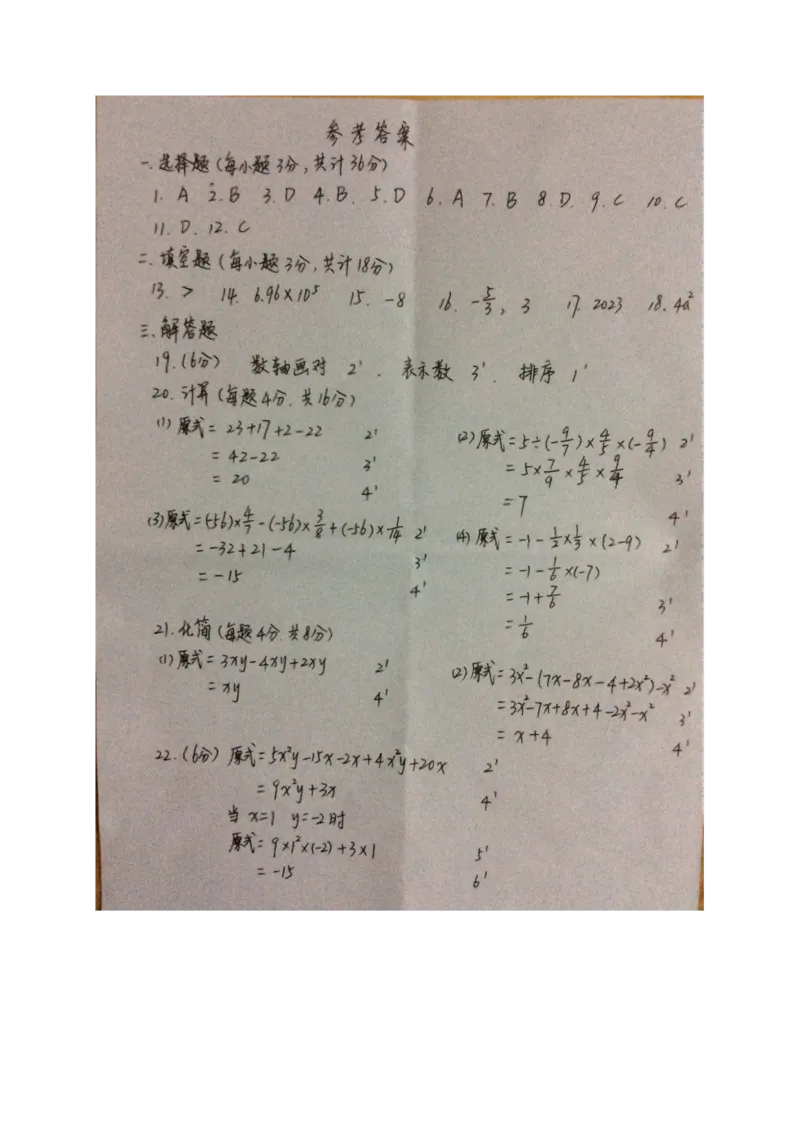 参考答案
一.选择题(每小题3分,共计36分)
1. A 2. B 3. D 4. B. 5. D 6. A 7. B 8. D. 9. C 10. C
11. D. 12. C
二.填空题(每小题3分,共计18分)
13. > 14. 6.96×10⁵ 15. -8 16. -5/3, 3 17. 2023 18. 4a²
三.解答题
19.(6分) 数轴画对 2'. 表示数 3'. 排序 1'
20.计算(每题4分.共16分)
(1)原式=23+17+2-22 2'
=42-22 3'
=20 4'
(2)原式=5÷(-9/7)×4/5×(-9/4) 2'
=5×7/9×4/5×9/4 3'
=7 4'
(3)原式=(-56)×4/7-(-56)×3/8+(-56)×1/14 2'
=-32+21-4 3'
=-15 4'
(4)原式=-1-1/2×1/3×(2-9) 2'
=-1-1/6×(-7)
=-1+7/6 3'
=1/6 4'
21.化简(每题4分.共8分)
(1)原式=3xy-4xy+2xy 2'
=xy 4'
(2)原式=3x²-(7x-8x-4+2x²)-x² 2'
=3x²-7x+8x+4-2x²-x² 3'
=x+4 4'
22.(6分) 原式=5x²y-15x-2x+4x²y+20x 2'
=9x²y+3x 4'
当x=1 y=-2时
原式=9×1²×(-2)+3×1 5'
=-15 6'